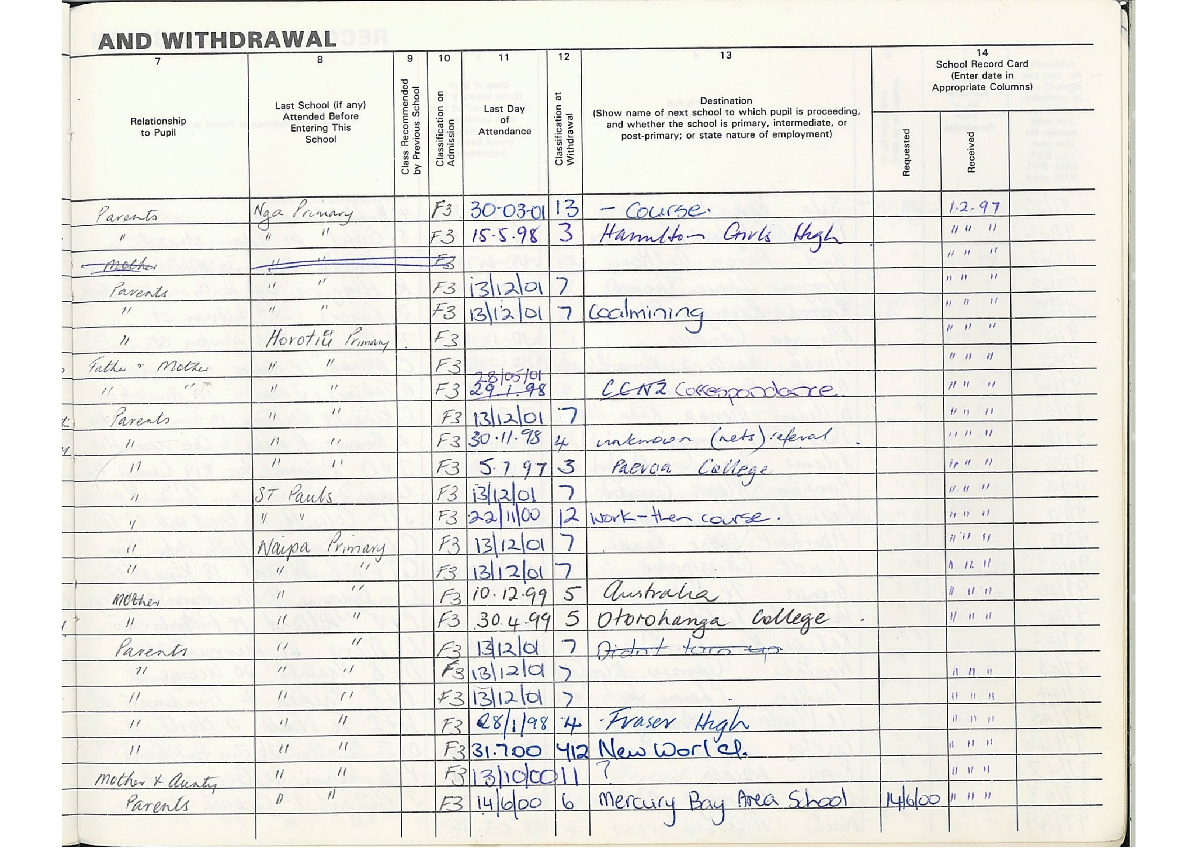 AND WITHDRAWAL
7 8 9 10 11 12 13 14
Relationship to Pupil
Last School (if any) Attended Before Entering This School
Class Recommended by Previous School
Classification on Admission
Last Day of Attendance
Classification at Withdrawal
Destination
(Show name of next school to which pupil is proceeding, and whether the school is primary, intermediate, or post-primary; or state nature of employment)
School Record Card (Enter date in Appropriate Columns)
Requested
Received
Parents Nga Primary F3 30-03-01 13 - Course. 1.2.97
" " " F3 15.5.98 3 Hamilton Girls High " " "
Mother " " F3 " " "
Parents " " F3 13/12/01 7 " " "
" " F3 13/12/01 7 Coalmining " " "
" Horotiu Primary F3 " " "
Father & Mother " " F3 " " "
28/05/01
" " " " F3 29.1.98 CCNZ Correspondance " " "
Parents " " F3 13/12/01 7 " " "
" " " F3 30.11.98 4 unknown (nets) referal " " "
" " " F3 5.7 97 3 Paeroa College " " "
" ST Pauls F3 13/12/01 7 " " "
" " " F3 22/11/00 12 work-then course. " " "
" Naipa Primary F3 13/12/01 7 " " "
" " " F3 13/12/01 7 " " "
Mother " " F3 10.12.99 5 Australia " " "
" " " F3 .30.4.99 5 Otorohanga College . " " "
Parents " " F3 13/12/01 7 Didn't turn up
" " " F3 13/12/01 7 " " "
" " " F3 13/12/01 7 " " "
" " " F3 28/1/98 4 Fraser High " " "
" " " F3 31.7.00 412 New World. " " "
Mother & Aunty " " F3 13/10/00 11 ? " " "
Parents " " F3 14/6/00 6 Mercury Bay Area School 14/6/00 " " "